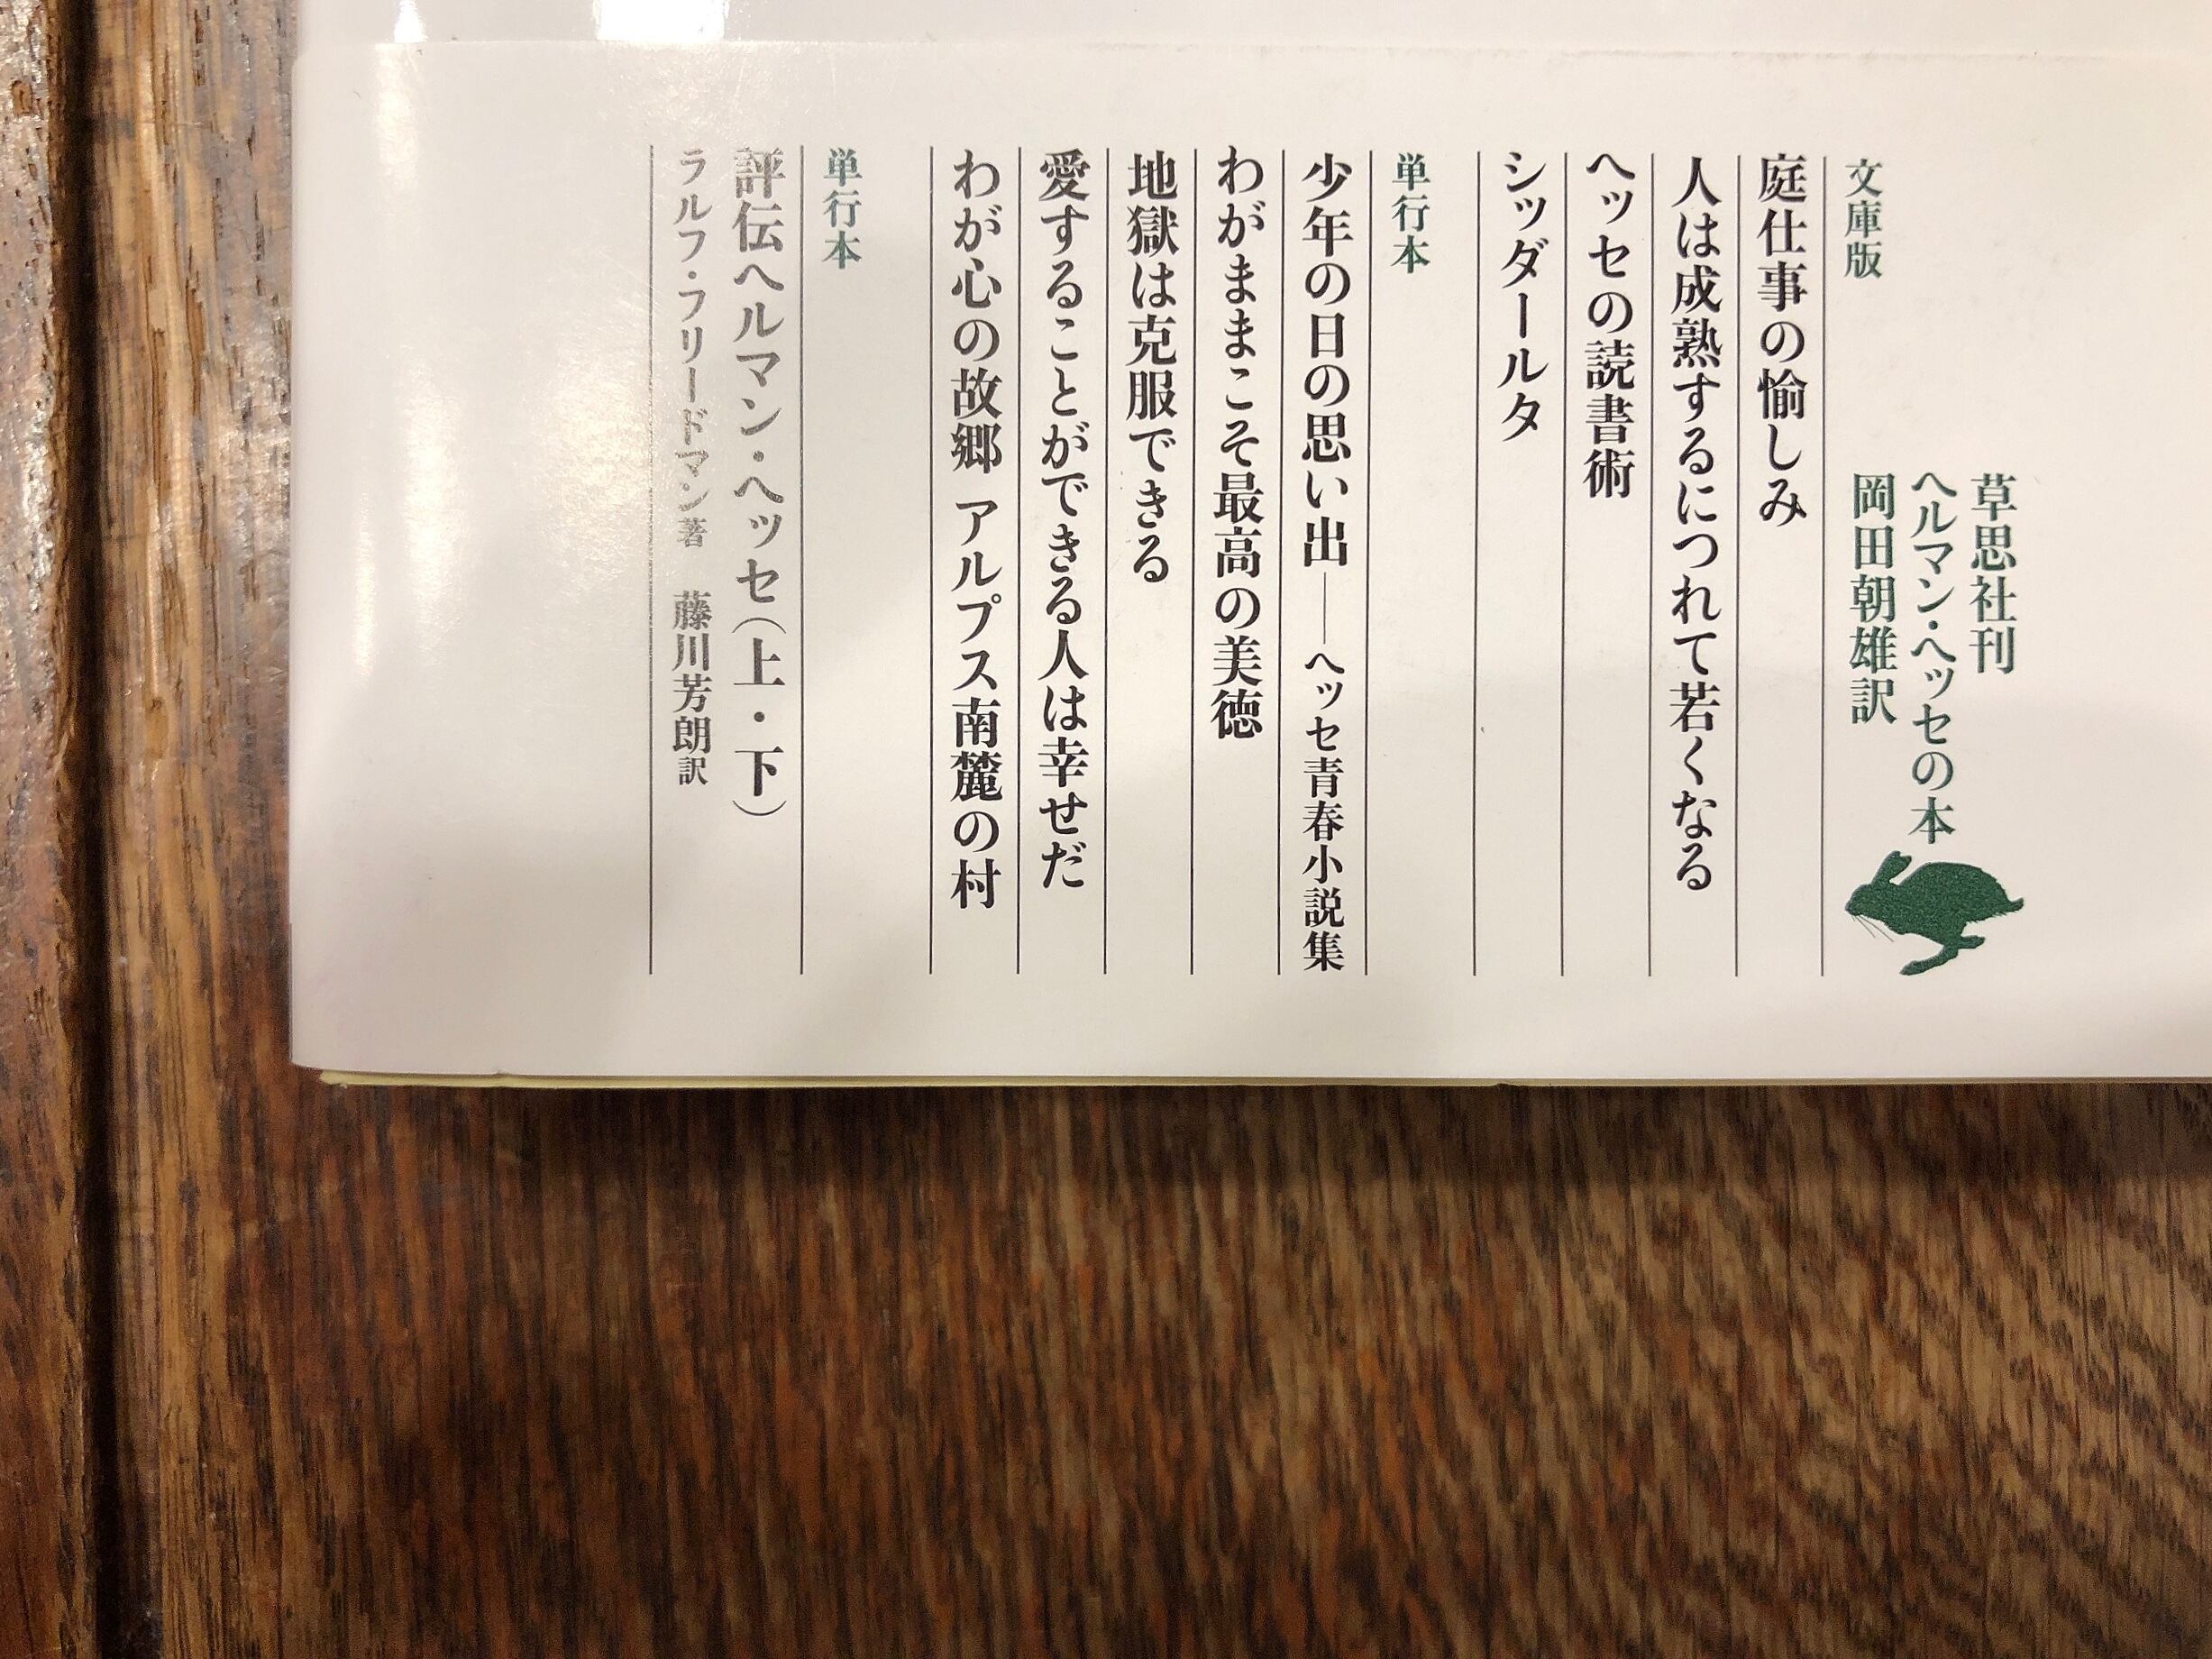 草思社刊
ヘルマン・ヘッセの本
岡田朝雄訳
文庫版
庭仕事の愉しみ
人は成熟するにつれて若くなる
ヘッセの読書術
シッダールタ
単行本
少年の日の思い出──ヘッセ青春小説集
わがままこそ最高の美徳
地獄は克服できる
愛することができる人は幸せだ
わが心の故郷 アルプス南麓の村
単行本
評伝ヘルマン・ヘッセ(上・下)
ラルフ・フリードマン著 藤川芳朗訳